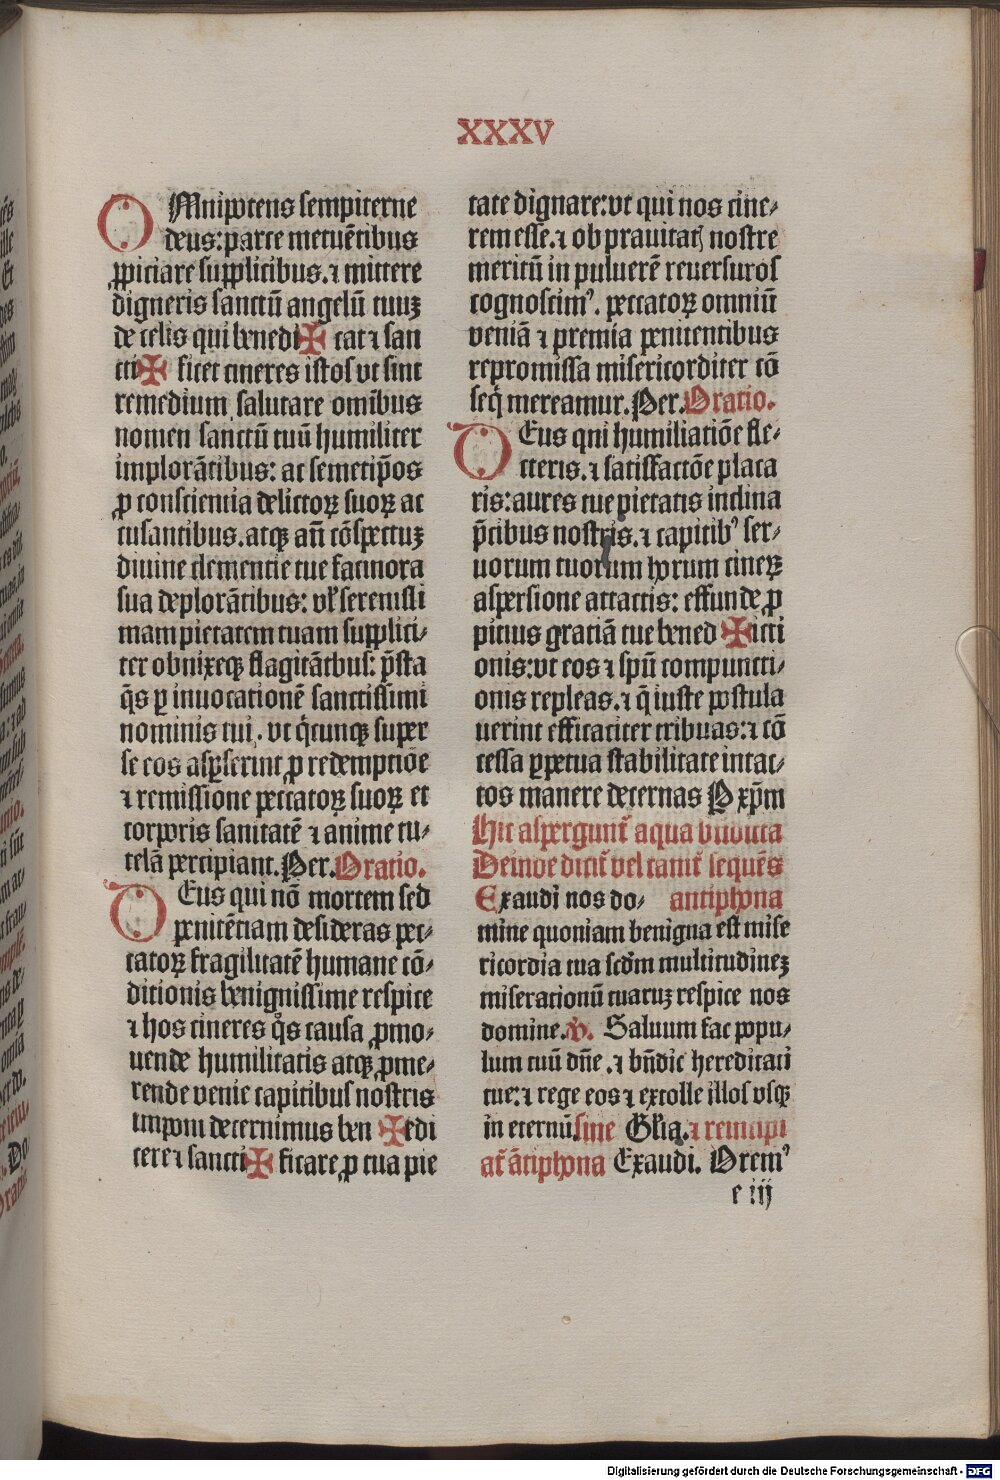 XXXV
OMnipotens sempiterne
deus: parce metuētibus
ꝓpiciare supplicibus. ⁊ mittere
digneris sanctū angelū tuuꝫ
de celis qui benedi✠ cat ⁊ san
cti✠ ficet cineres istos vt sint
remedium salutare omībus
nomen sanctū tuū humiliter
implorātibus: ac semetip̄os
ꝓ consciencia delictoꝝ suoꝝ ac
cusantibus. atqꝫ an̄ cōspectuꝫ
diuine clemencie tue facinora
sua deplorātibus: vel̛ serenissi
mam pietatem tuam supplici⸗
ter obnixeqꝫ flagitātbus: p̄sta
q̄s ꝑ inuocationē sanctissimi
nominis tui. vt q̇cunqꝫ super
se eos aspserint ꝓ redemptiōe
⁊ remissione peccatoꝝ suoꝝ et
corporis sanitatē ⁊ anime tu⸗
telā percipiant. Per. Oratio.
DEus qui nō mortem sed
penitētiam desideras pec⸗
catoꝝ fragilitatē humane cō⸗
ditionis benignissime respice
⁊ hos cineres q̇s causa ꝓmo⸗
uende humilitatis atqꝫ ꝓme⸗
rende venie capitibus nostris
imponi decernimus ben ✠edi
cere ⁊ sancti✠ ficare ꝓ tua pie
tate dignare: vt qui nos cine⸗
rem esse. ⁊ ob prauitatꝫ nostre
meritū in puluerē reuersuros
cognoscimꝰ. peccatoꝝ omniū
veniā ⁊ premia penitentibus
repromissa misericorditer cō
seq̇ mereamur. Per. Oratio.
DEus qni humiliatiōe fle⸗
cteris. ⁊ satisfactōe placa
ris: aures tue pietatis inclina
p̄cibus nostris. ⁊ capitibꝰ ser⸗
uorum tuorum horum cineꝝ
aspersione attactis: effunde ꝓ
picius gratiā tue bened ✠icti
onis: vt eos ⁊ spū compuncti⸗
onis repleas. ⁊ q̄ iuste postula
uerint efficaciter tribuas: ⁊ cō
cessa ꝑpetua stabilitate intac⸗
tos manere decernas P xp̄m
Hic aspergunt̛ aqua bn̄dicta
Deinde dicit̛ vel canit̛ sequēs
Exaudi nos do⸗ antiphona
mine quoniam benigna est mise
ricordia tua scd̄m multitudineꝫ
miserationū tuaruꝫ respice nos
domine. ℣. Saluum fac popu⸗
lum tuū dn̄e. ⁊ bn̄dic hereditati
tue: ⁊ rege eos ⁊ extolle illos vsqꝫ
in eternū sine Gl̛ia. ⁊ reincipi
at̛ ātiphona Exaudi. Oremꝰ
e iij
Digitalisierung gefördert durch die Deutsche Forschungsgemeinschaft - DFG